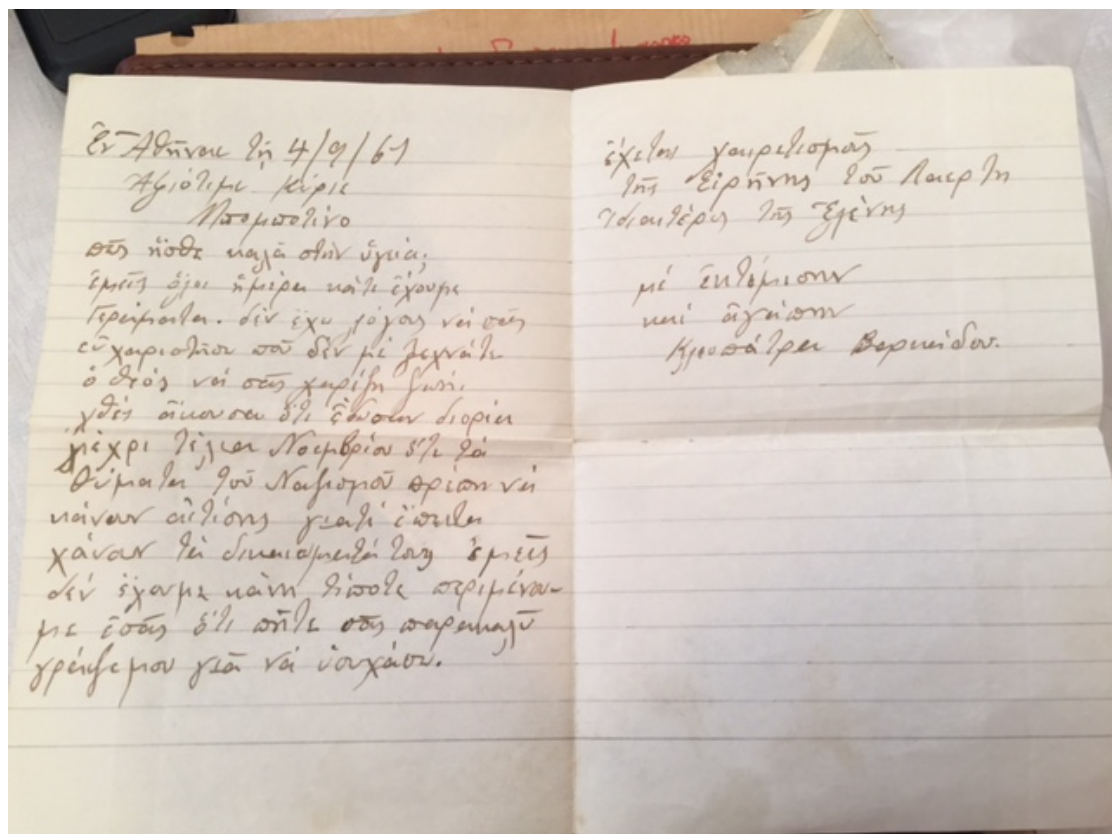 Ἐν Ἀθήναι τῇ 4/9/61
Ἀξιότιμε Κύριε
Μπομποτίνο
πῶς ἦσθε καλά στήν ὑγεία;
ἐμεῖς ὅλοι ἡμέρα κάτι ἔχουμε
Γεράματα. δέν ἔχω λόγους νά σᾶς
εὐχαριστήσω ποῦ δέν μέ ξεχνάτε
ὁ θεός νά σᾶς χαρίζη ζωή.
χθές ἄκουσα ὅτι ἔδωσαν διορία
μέχρι τέλεια Νοεμβρίου ὅτι τά
θύματα τοῦ Ναζισμοῦ πρέπη νά
κάνουν αἰτίσης γιατί ἔπειτα
χάνουν τά δικαιώματά τους ἐμεῖς
δέν ἔχουμε κάνη τίποτε περιμένου-
με ἐσᾶς ὅτι πῆτε σᾶς παρακαλῶ
γράψε μου γιά νά ἰσυχάσω.
ἔχεται χαιρετισμᾶς
τῆς Εἰρήνης τοῦ Λαερτη
Ἰδιαιτέρως τῆς Ἑλένης
μέ ἐκτίμισην
καί ἀγάπην
Κλεοπάτρα